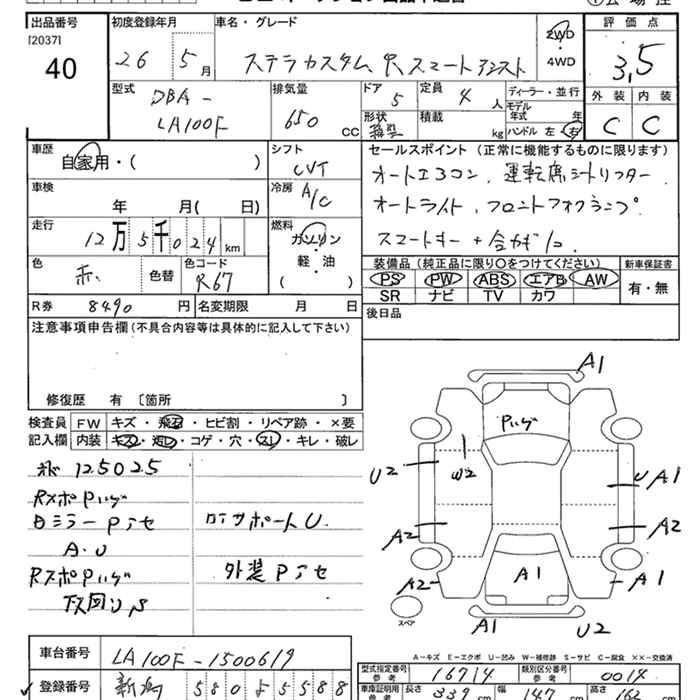 出品番号 初度登録年月 車名・グレード 評価点
[2037]
40
26 年 5月
ステラカスタム R スマートアシスト
2WD
4WD
3,5
型式 排気量 ドア 定員 ディーラー・並行
DBA-
LA100F
650 CC
5
4人
モデル年式 年
形状 積載 kg ハンドル 左・右
外装 内装
C C
車歴 自家用・( )
シフト
CVT
セールスポイント(正常に機能するものに限ります)
オートエアコン、運転席シートリフター
オートライト、フロントフォグランプ
スマートキー+合カギ1コ
車検 年 月( 日)
冷房
A/C
走行
12万5千024km
燃料
ガソリン
軽・油
( )
色 色替 色コード
赤 R67
装備品(純正品に限り○をつけてください) 新車保証書
PS PW ABS エアB AW
SR ナビ TV カワ
有・無
R券 8490円 名変期限 月 日
後日品
注意事項申告欄(不具合内容等は具体的に記入して下さい)
修復歴 有 〔箇所 〕
検査員 FW キズ・飛石・ヒビ割・リペア跡・×要
記入欄 内装 キズ・汚レ・コゲ・穴・スレ・キレ・破レ
125025
A・U
ロアサポートU.
外装Pアセ
A1
Pハゲ
U2
W2
U A1
A2
A2
A2
A1
A1
A1
U2
スペア
A-キズ E-エクボ U-凹み W-補修跡 S-サビ C-腐食 ××-交換済
車台番号 LA100F-1500619
登録番号 新潟 580 5588
型式指定番号 参考 16714 類別区分番号 参考 0014
車庫証明用 参考 長さ 339 cm 幅 147 cm 高さ 162 cm